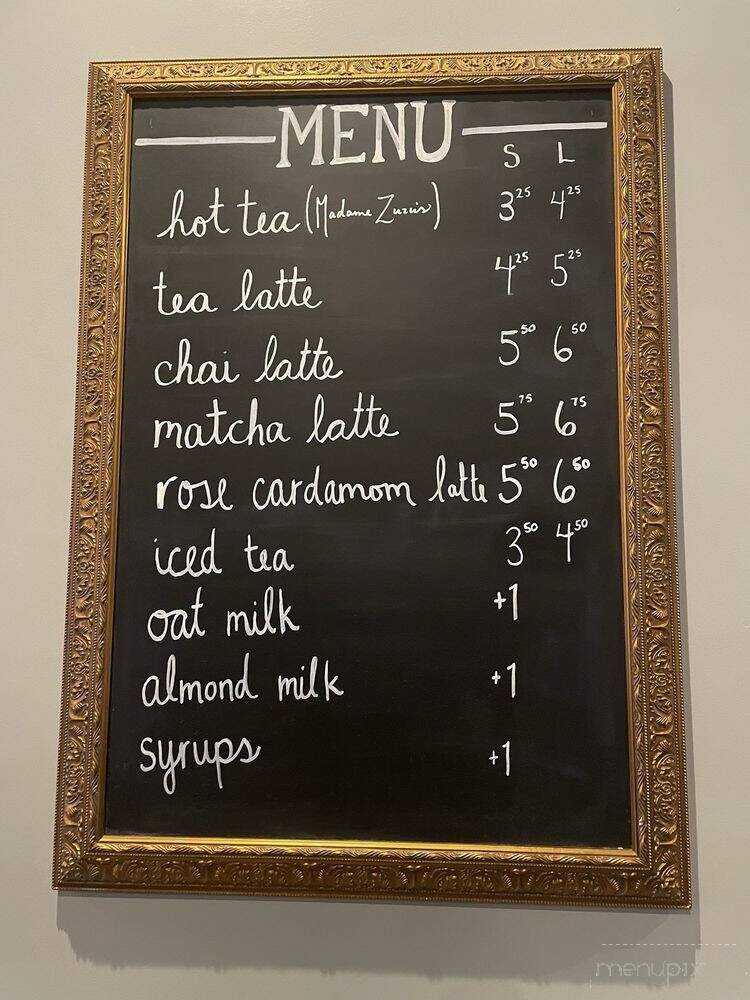 MENU
S L
hot tea (Madame Zuzu's) 3.25 4.25
tea latte 4.25 5.25
chai latte 5.50 6.50
matcha latte 5.75 6.75
rose cardamom latte 5.50 6.50
iced tea 3.50 4.50
oat milk +1
almond milk +1
syrups +1
menupix